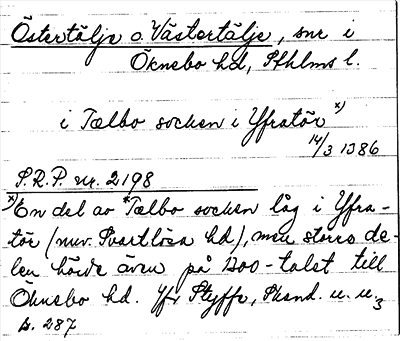 Östertälje o. Västertälje, snr i
Öknebo hd, Sthlms l.
i Tælbo socken i Yfratör x)
14/3 1386
S.R.P. nr. 2198
x) En del av *Tælbo socken låg i Yfra-
tör (nuv. Svartlösa hd), men större de-
len hörde även på 1300-talet till
Öknebo hd. Jfr Styffe, Skand. u. u. 3
s. 287